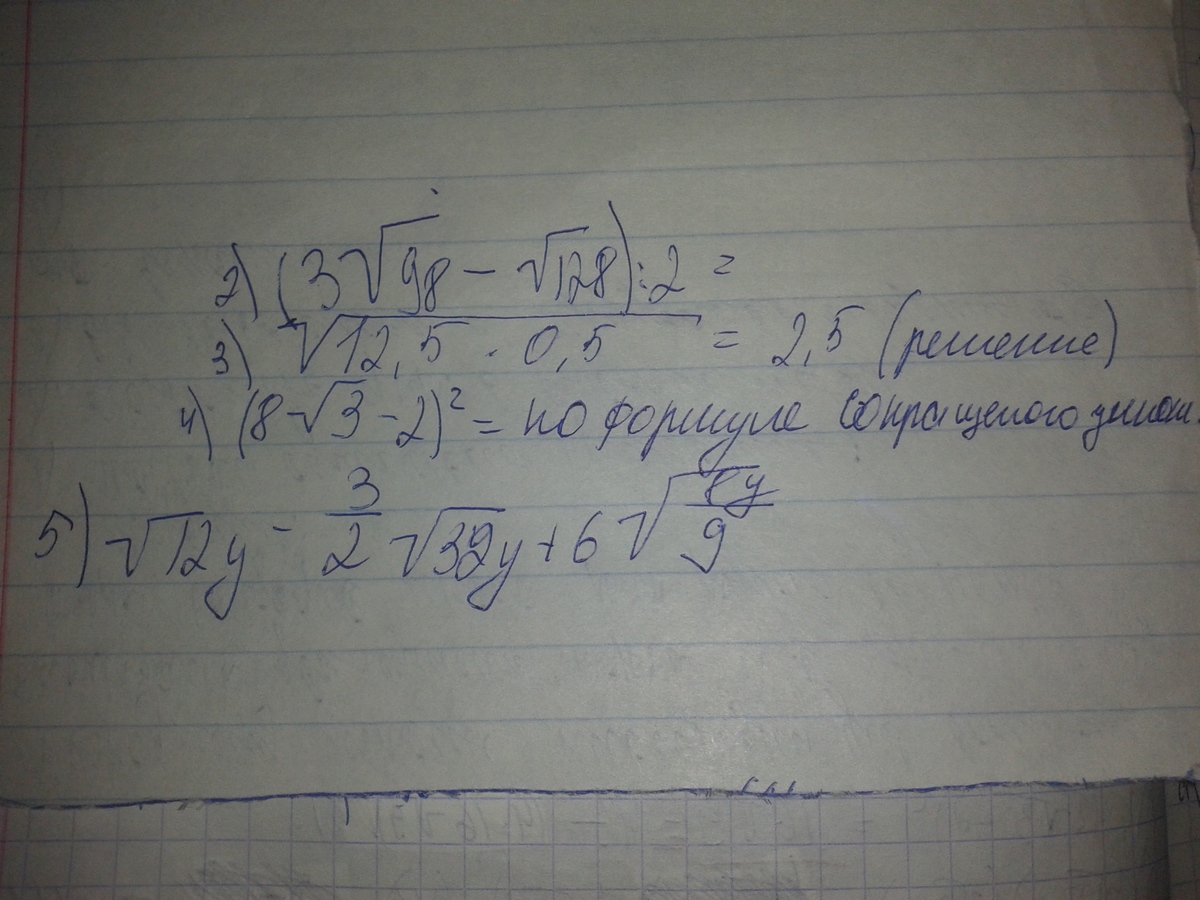 2) (3√98 − √128) : 2 =
3) √12,5 · 0,5 = 2,5 (решение)
4) (8 − √3 − 2)² = по формуле сокращеного
5) √12y − 3/2 √32y + 6 √y/9